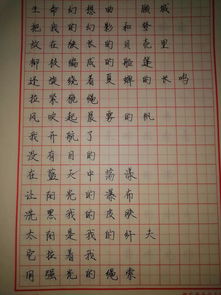 生命幻想曲 顾城
把我的幻影和梦
放在狭长的贝壳里
柳枝编成的船篷
还旋绕着夏蝉的长鸣
拉紧桅绳
风吹起晨雾的帆
我开航了
没有目的
在蓝天中荡漾
让阳光的瀑布
洗黑我的皮肤
太阳是我的纤夫
它拉着我
用强光的绳索